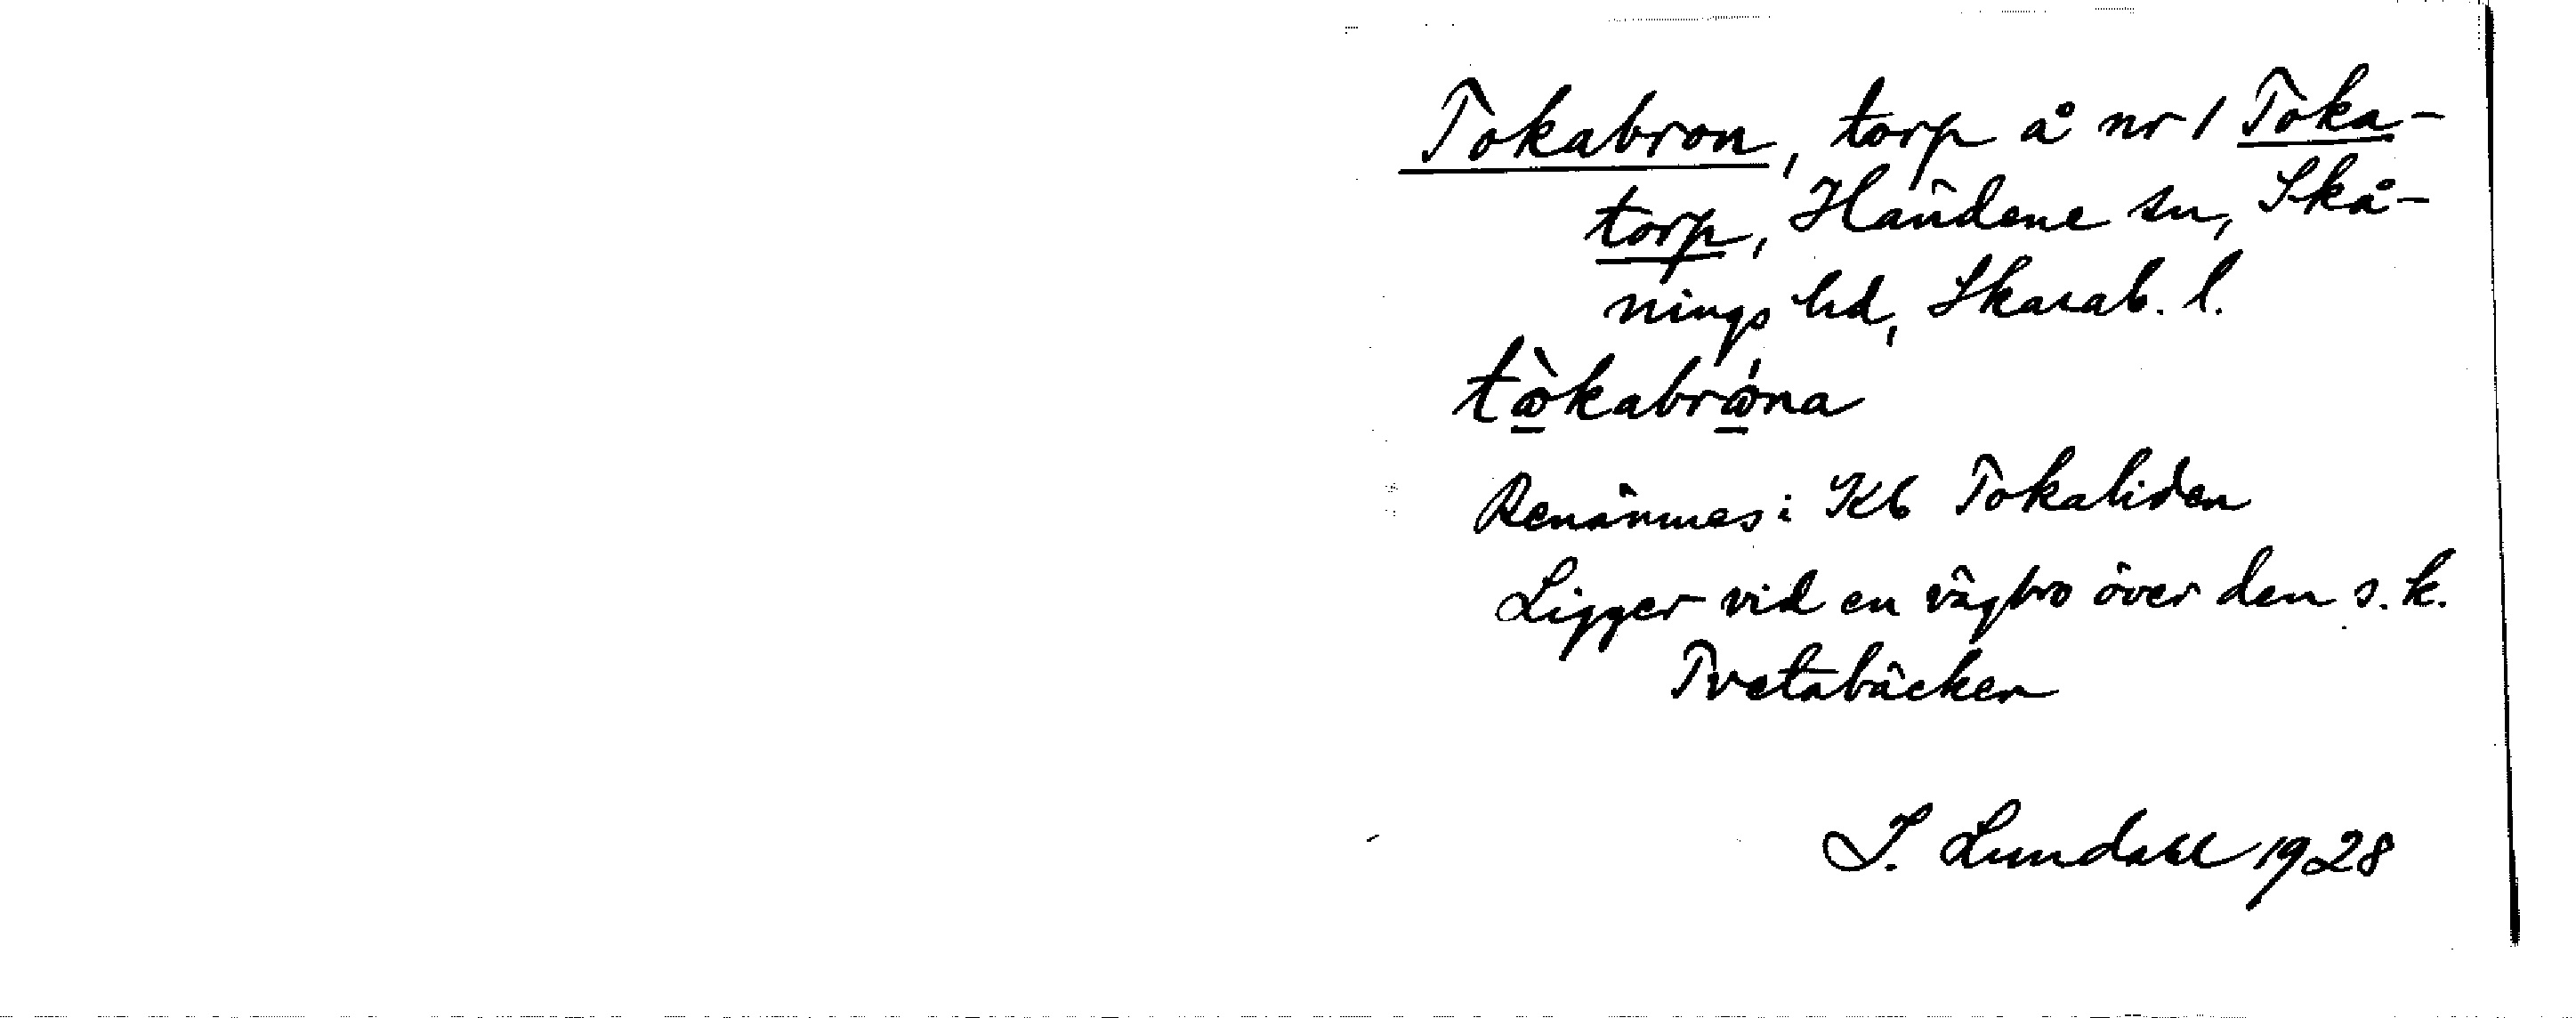 Tokabron, torp å nr 1 Toka-
torp, Händene sn, Skå-
nings hd, Skarab. l.
tòkabróna
Benämnes i Kb Tokaliden
Ligger vid en vägbro över den s.k.
Tvetabäcken
I. Lundahl 1928